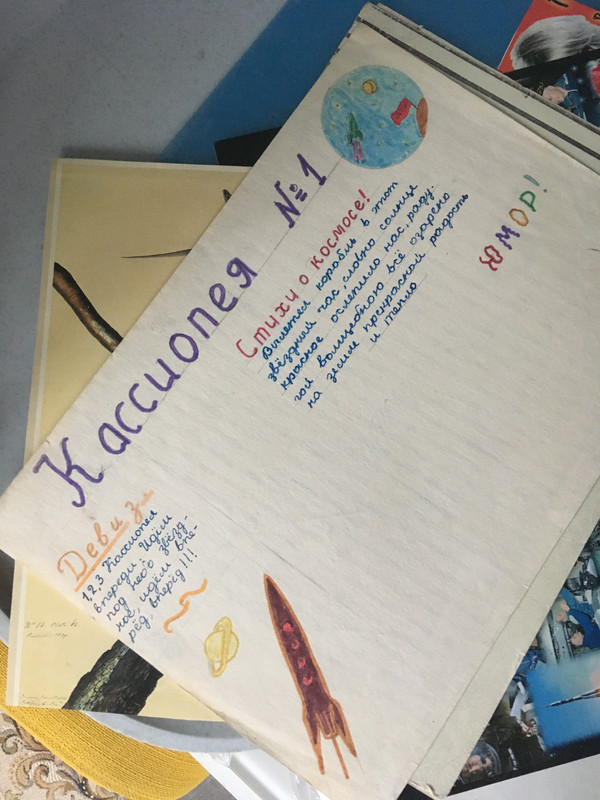 Кассиопея №1
Стихи о космосе!
Вылетел корабль в этот
звёздный час, словно солнце
красное ослепило нас, раду-
гой волшебною всё озарено
на земле прекрасной радость
и тепло
ЮМОР!
Девиз
1,2,3 Кассиопея
впереди. Идём
под небо звёзд-
ное, идём впе-
рёд, вперёд!!!